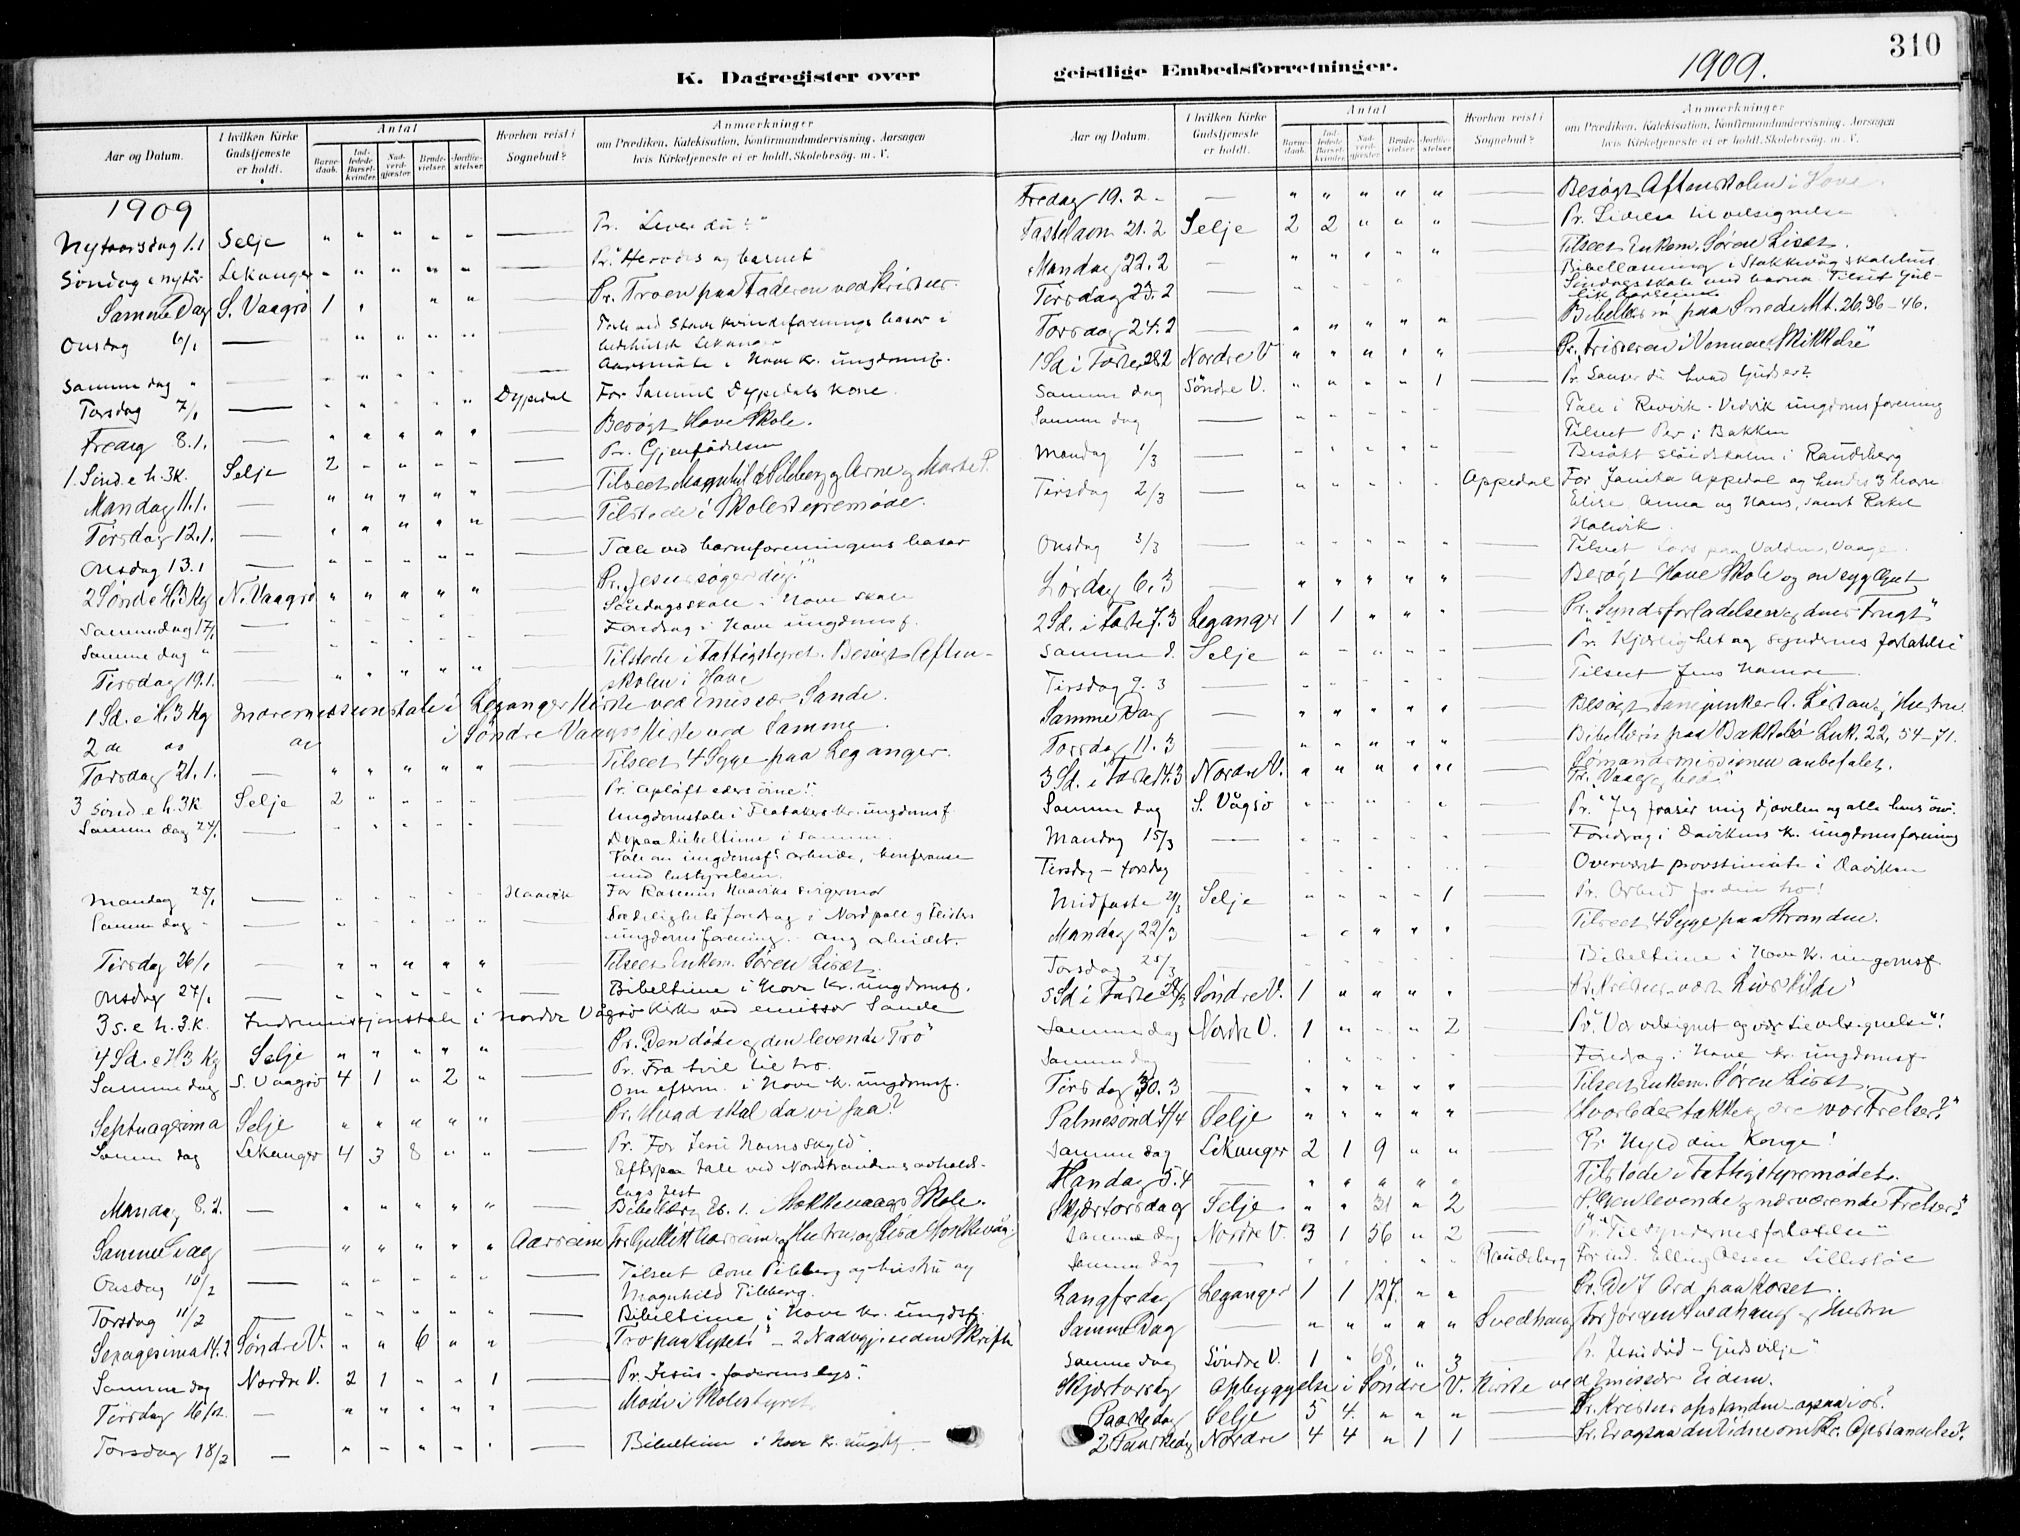 310
K. Dagregister over geistlige Embedsforretninger. 1909.
Aar og Datum. I hvilken Kirke Gudstjeneste er holdt. Antal Barnedaab. Indledede Barselkvinder. Nadverdgjæster. Brudevielser. Jordfæstelser. Hvorhen reist i Sognebud? Anmærkninger om Prædiken, Katekisation, Konfirmandundervisning, Aarsagen hvis Kirketjeneste ei er holdt, Skolebesøg. m. V.
1909
Nytaarsdag 1.1 Selje " " " " " — Pr. "Lever du?"
Søndag e. nytår Lekanger " " " " " — Pr. "Herodes og barnet"
Samme Dag S. Vaagsø 1 " " " — Pr. Troen paa Faderen ved Kristus.
Onsdag 6/1 — " " " " " — Tale ved Stave kvindeforenings basar i
bedehuset Lekanger
Samme dag " — " " " " " — Aarsmøte i Hove kr. ungdomsf.
Torsdag 7/1 — " " " " " Dyppedal For Samuel Dyppedals kone.
Fredag 8.1. — " " " " " — Besøgt Hove Skole.
1. Sønd. e. h. 3k. Selje 2 " " " " — Pr. Gjenfødelsen
Mandag 11.1. — " " " " " — Tilseet Magnhild Tilleberg og Arne og Marte P.
Tirsdag 12.1. — " " " " " — Tilstede i Skolestyremøde.
Onsdag 13.1 — " " " " " — Tale ved barneforeningens basar
2 Sønd e H. 3 Kg N. Vaagsø " " " " " — Pr. "Jesus søger dig!"
Samme dag 17/1 — " " " " " — Søndagsskole i Hove skole
Samme dag " — " " " " " — Foredrag i Hove ungdomsf.
Tirsdag 19.1. — " " " " " — Tilstede i Fattigstyret. Besøgt Aften-
skolen i Hove
1 Sd. e H. 3 Kg Indremissionstale i Leganger Kirke ved Emissær Sande.
2 de do do i Søndre Vaagsø Kirke ved Samme.
Torsdag 21.1. — " " " " " — Tilseet 4 Syge paa Leganger.
3 sønd. e h. 3k Selje 2 " " " " — Pr. "Opløft eders öine!"
Samme dag 24/1 — " " " " " — Ungdomstale i Flatakers kr. ungdomsf.
Depaa bibeltime i samme.
Tale om ungdomsf. arbeide, konferanse
med bestyrelsen.
Mandag 25/1 — " " " " " Haavik For Rasmus Haaviks svigermor
Samme dag " — " " " " " — Sædelighetsforedrag i Nordpoll og Flister
ungdomsforening. ang arbeidet.
Tirsdag 26/1 — " " " " " — Tilseet Enkem. Søren Liset.
Onsdag 27/1 — " " " " " — Bibeltime i Hove kr. ungdomsf.
3 s. e h. 3. k. Indremissjonstale i Nordre Vågsø Kirke ved emissær Sande
4 Sd. e H 3 Kg Selje " " " " " — Pr. "Den døde og den levende Tro"
Samme dag S. Vaagsø 4 1 " 2 " — Pr. Fra tvil til tro.
Om efterm. i Hove kr. ungdomsf.
Septuagesima Selje " " " " " — Pr. Hvad skal da vi faa?
Samme dag Lekanger 4 3 8 " " — Pr. "For Jesu Navns skyld".
Efterpaa tale ved Nordstrandens avholds-
lags fest
Mandag 8.2. — " " " " " — Bibellæsg Es. 1. i Stokkevaags Skole.
Samme Dag " " " " " Aarseim For Gullik Aarseim og Hustru, og Lisa Stokkevåg
Onsdag 10/2 — " " " " " — Tilseet Arne Pileberg og hustru og
Magnhild Tilberg.
Torsdag 11/2 — " " " " " — Bibeltime i Hove kr. ungdsf.
Sexagesima 14.2 Søndre V. " " 6 " " — "Tro paa Lyset!" — 2 Nadvgj. siden Skrifte
Samme dag Nordre V. 2 1 " " 1 — Pr. "Jesus - faderens lys".
Tirsdag 16 feb. — " " " " " — Møde i Skolestyret
Torsdag 18/2 — " " " " " — Bibeltime i Hove kr. ungdsf.
Aar og Datum. I hvilken Kirke Gudstjeneste er holdt. Antal Barnedaab. Indledede Barselkvinder. Nadverdgjæster. Brudevielser. Jordfæstelser. Hvorhen reist i Sognebud? Anmærkninger om Prædiken, Katekisation, Konfirmandundervisning, Aarsagen hvis Kirketjeneste ei er holdt, Skolebesøg. m. V.
Fredag 19.2 — " " " " " — Besøgt Aftenskolen i Hove.
Fastelavn 21.2 Selje 2 2 " " " — Pr. Lidelse til velsignelse
Mandag 22.2 — " " " " " — Tilseet Enkem. Søren Liset.
Tirsdag 23.2 — " " " " " — Bibellæsning i Stokkevåg skolehus
Søndagsskole med barna. Tilset Gul-
lik Aarseim
Torsdag 24.2 — " " " " " — Bibellæsn paa Snede Mt. 26, 36-46.
1 Sd i Faste 28.2 Nordre V " " " " " — Pr. "Fristeren i Vennens Skikkelse"
Samme dag Søndre V. " " " " 1 — Pr. Sanser du hvad Guds er?
Samme dag — " " " " " — Tale i Revvik-Vedvik ungdomsforening
Mandag 1/3 — " " " " " — Tilseet Per i Bakken
Besøkt sløidskolen i Raudeberg
Tirsdag 2/3 — " " " " " Appedal For Janita Appedal og hendes 3 barn
Elise, Anna og Hans, samt Rakel
Halsvik.
Onsdag 3/3 — " " " " " — Tilseet Lars paa Valden, Vaage.
Lørdag 6.3 — " " " " " — Besøgt Hove Skole og en syg Gut
2 Sd. i Faste 7.3 Leganger 1 1 " " " — Pr. "Syndsforladelsen og dens Frugt"
Samme d. Selje " " " " " — Pr. Kjærlighet og syndernes forlatelse
Tirsdag 9.3 — " " " " " — Tilseet Jens Hamre
Samme Dag — " " " " " — Besøgt Landjunker A. Listau og Hustru.
Torsdag 11.3 — " " " " " — Bibellæsn paa Bakkebø Luk. 22, 54-71.
3 Sd. i Faste 14.3 Nordre V. " " " " " — Sømandsmissionen anbefalet.
Pr. "Vaag og bed"
Samme dag S. Vågsø " " " " " — Pr. "Jeg forsier mig djævelen og alle hans ..."
Mandag 15/3 — " " " " " — Foredrag i Davikens kr. ungdomsforening
Tirsdag - torsdag — Overvært provstimøte i Daviken
Midfaste 21/3 Selje " " " " 1 — Pr. Arbeid for din tro!
Mandag 22/3 — " " " " " — Tilseet 4 Syge paa Stranden.
Torsdag 25/3 — " " " " " — Bibeltime i Hove kr. ungdomsf.
5 Sd i Faste 28/3 Søndre V. 1 " " " " — Pr. "Kristus vor Livskilde"
Samme dag Nordre V. 1 " " " 2 — Pr. "Vær velsignet og vær til velsignelse"!
Samme dag — " " " " " — Foredrag i Hove kr. ungdomsf.
Tirsdag 30.3 — " " " " " — Tilseet Enkem. Søren Liset.
Palmesønd 4/4 Selje " " " " " — "Hvorledes takke og ære vor Frelser?"
Samme dag Lekanger 2 1 9 " " — Pr. Hyld din Konge!
Mandag 5.4 — " " " " " — Tilstede i Fattigstyremødet.
Skjærtorsdag Selje " " 31 " 2 — Pr. "Gjenlevende og nærværende Frelser"
Samme dag Nordre V. 3 1 56 " 2 — Pr. "Til syndernes forlatelse"
Samme dag — " " " " " Raudeberg For ind. Elling Olsen Lillestøl
Langfredag Leganger 1 1 127 " " — Pr. De 7 Ord paa Korset.
Samme Dag — " " " " " Svedhaug For Jørgen Svedhaug og Hustru
Samme dag Søndre V. 1 " 68 " 3 — Pr. "Jesu død - Guds vilje"
Skjærtorsdag Opbyggelse i Søndre V. Kirke ved Emissær Eidem.
Paaskedag Selje 5 4 " " " — Pr. Kristus opstanden - ogsaa i os?
2 Paaskedag Nordre 4 4 " 1 1 — Pr. Er ogsaa du Vidne om Kr. Opstandelse?